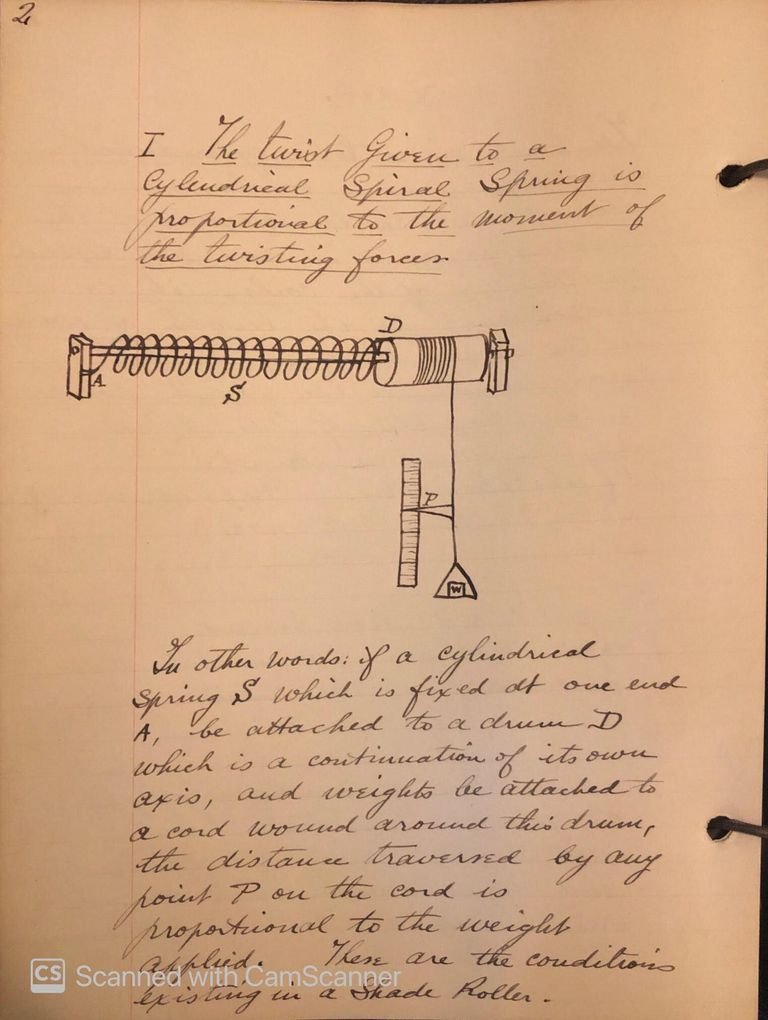 2
I The twist Given to a
Cylendrical Spiral Spring is
proportional to the moment of
the twisting forces
D
A
S
P
W
In other words: if a cylindrical
spring S which is fixed at one end
A, be attached to a drum D
which is a continuation of its own
axis, and weights be attached to
a cord wound around this drum,
the distance traversed by any
point P on the cord is
proportional to the weight
applied. These are the conditions
existing in a Shade Roller.
CS Scanned with CamScanner